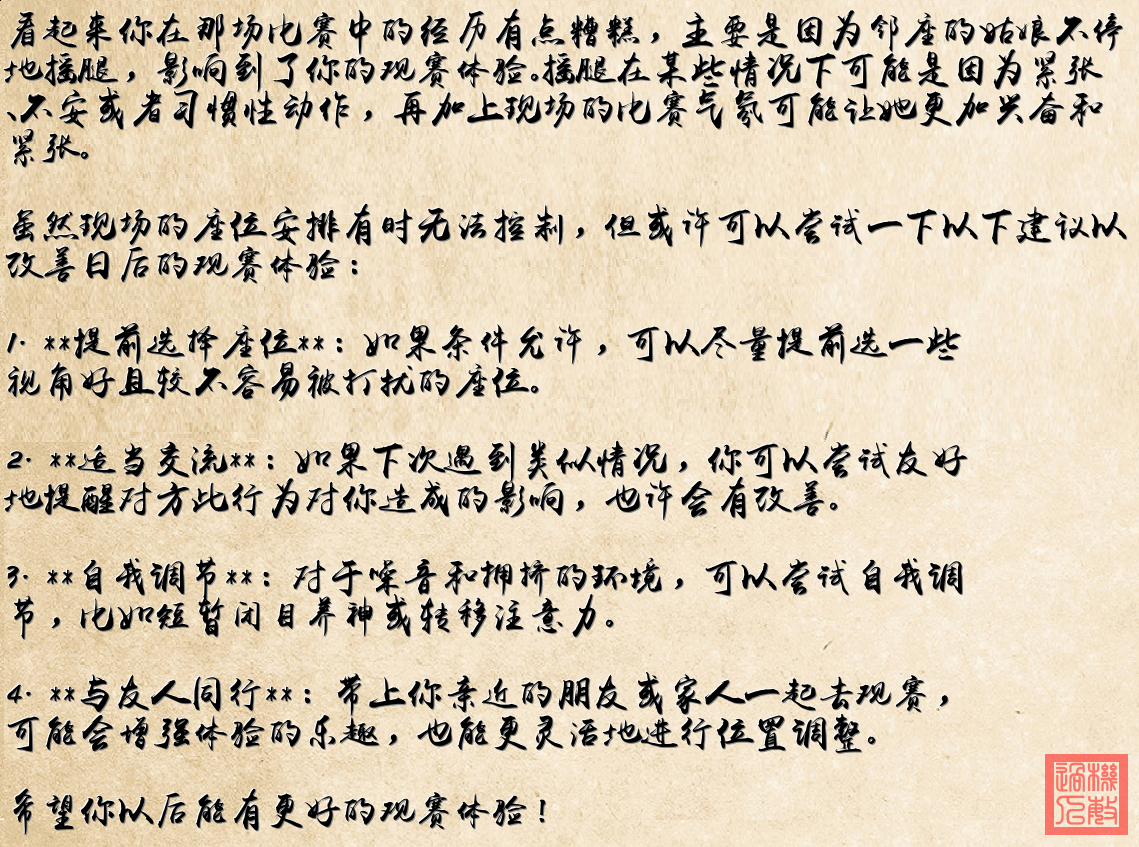 看起来你在那场比赛中的经历有点糟糕，主要是因为邻座的姑娘不停
地摇腿，影响到了你的观赛体验。摇腿在某些情况下可能是因为紧张
、不安或者习惯性动作，再加上现场的比赛气氛可能让她更加兴奋和
紧张。
虽然现场的座位安排有时无法控制，但或许可以尝试一下以下建议以
改善日后的观赛体验：
1. **提前选择座位**：如果条件允许，可以尽量提前选一些
视角好且较不容易被打扰的座位。
2. **适当交流**：如果下次遇到类似情况，你可以尝试友好
地提醒对方此行为对你造成的影响，也许会有改善。
3. **自我调节**：对于噪音和拥挤的环境，可以尝试自我调
节，比如短暂闭目养神或转移注意力。
4. **与友人同行**：带上你亲近的朋友或家人一起去观赛，
可能会增强体验的乐趣，也能更灵活地进行位置调整。
希望你以后能有更好的观赛体验！